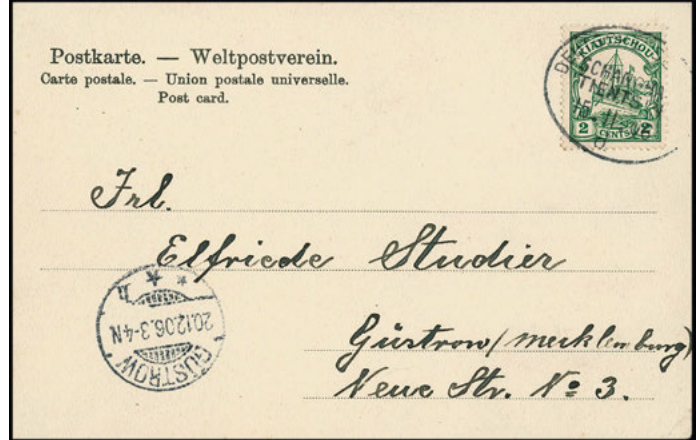 Postkarte. — Weltpostverein.
Carte postale. — Union postale universelle.
Post card.
KIAUTSCHOU
2 CENTS 2
SCHANGHAI
TIENTSIN
Frl.
Elfriede Studier
Güstrow/mecklenburg)
Neue Str. No 3.
GÜSTROW
20.12.06.3-4N